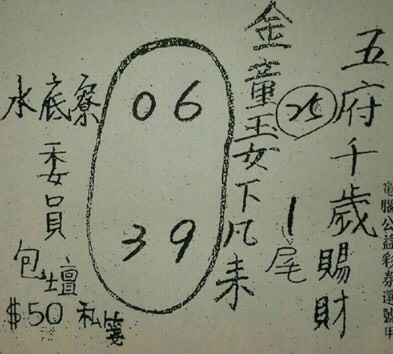 電腦公益彩券選號
五府千歲賜財
1尾
金童玉女下凡来
06
39
水底寮
委員
包壇
$50 私箋